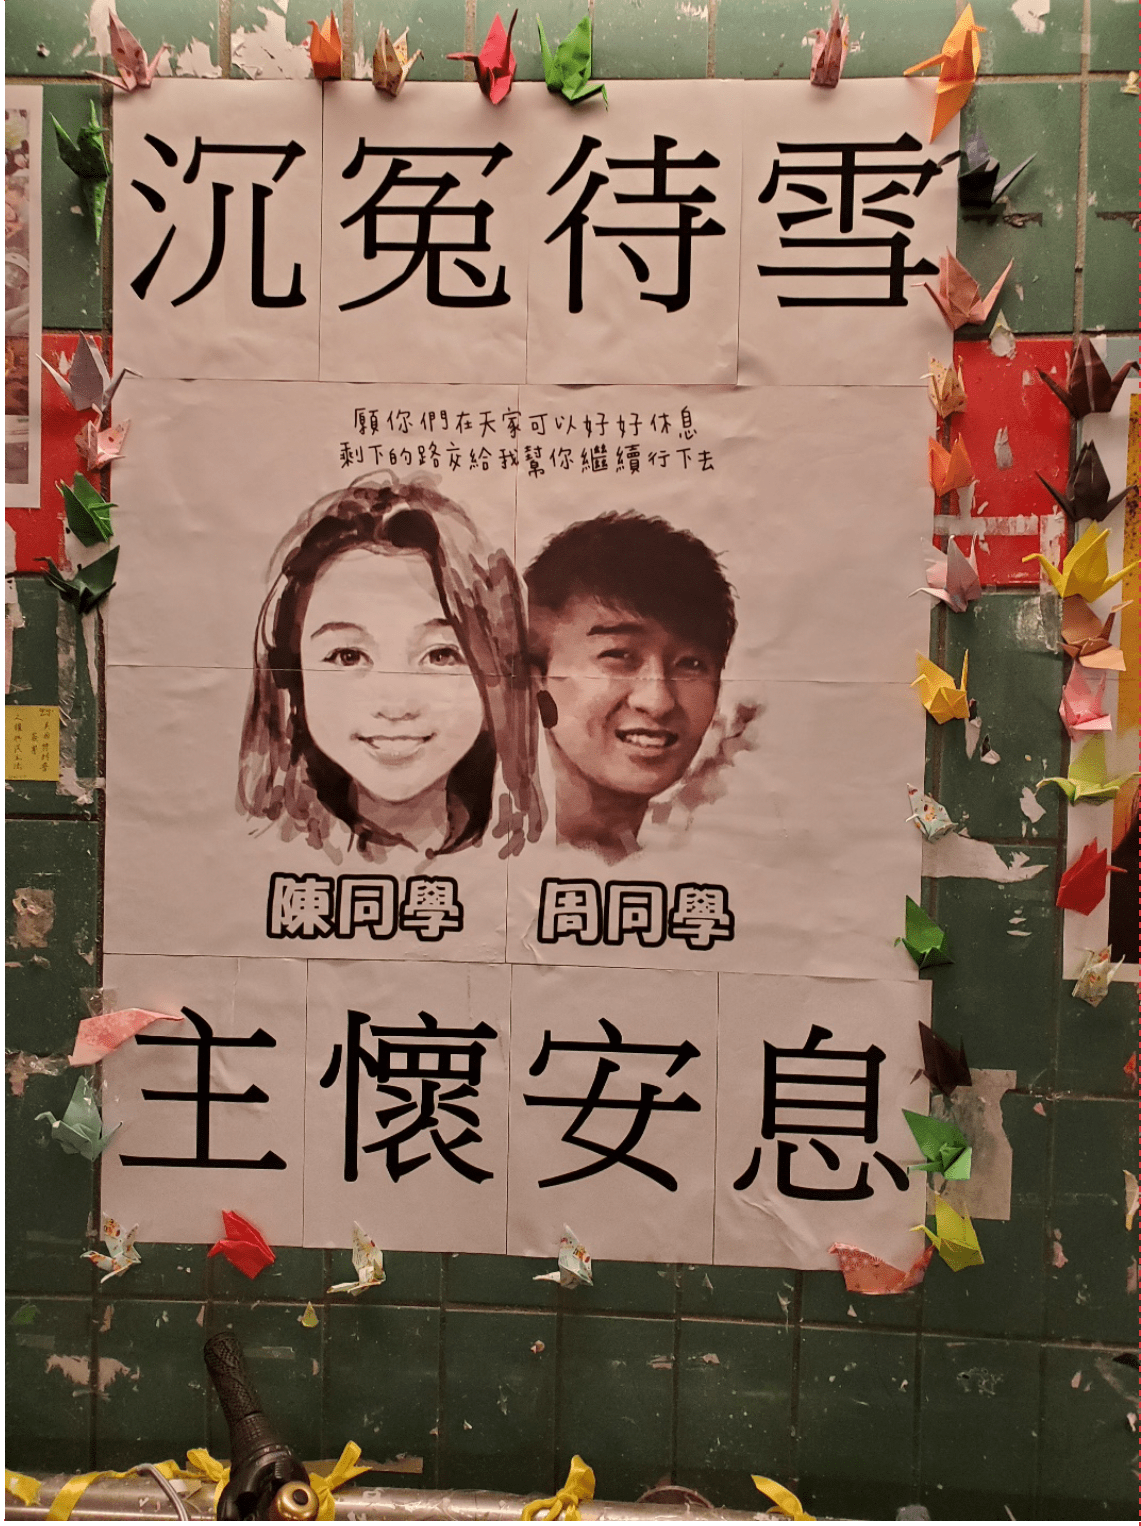 沉冤待雪
願你們在天家可以好好休息
剩下的路交給我幫你繼續行下去
陳同學
周同學
主懷安息